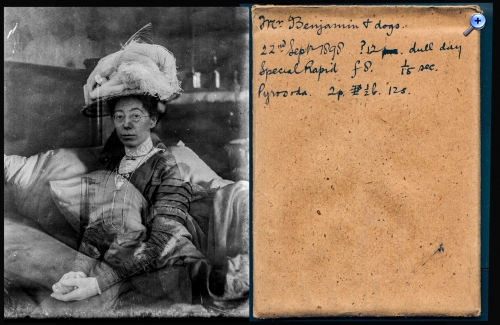 Mr Benjamin & dogs.
22nd Sept 1898 ?12 dull day
Special Rapid f 8. 1/15 sec.
Pyrosoda. 2p. 12s.